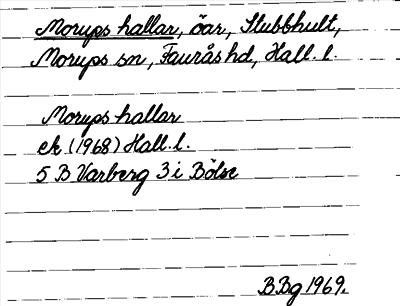 Morups hallar, öar, Stubbhult,
Morups sn, Faurås hd, Hall. l.
Morups hallar
ek (1968) Hall. l.
5 B Varberg 3 i Bölse
B Bg 1969.